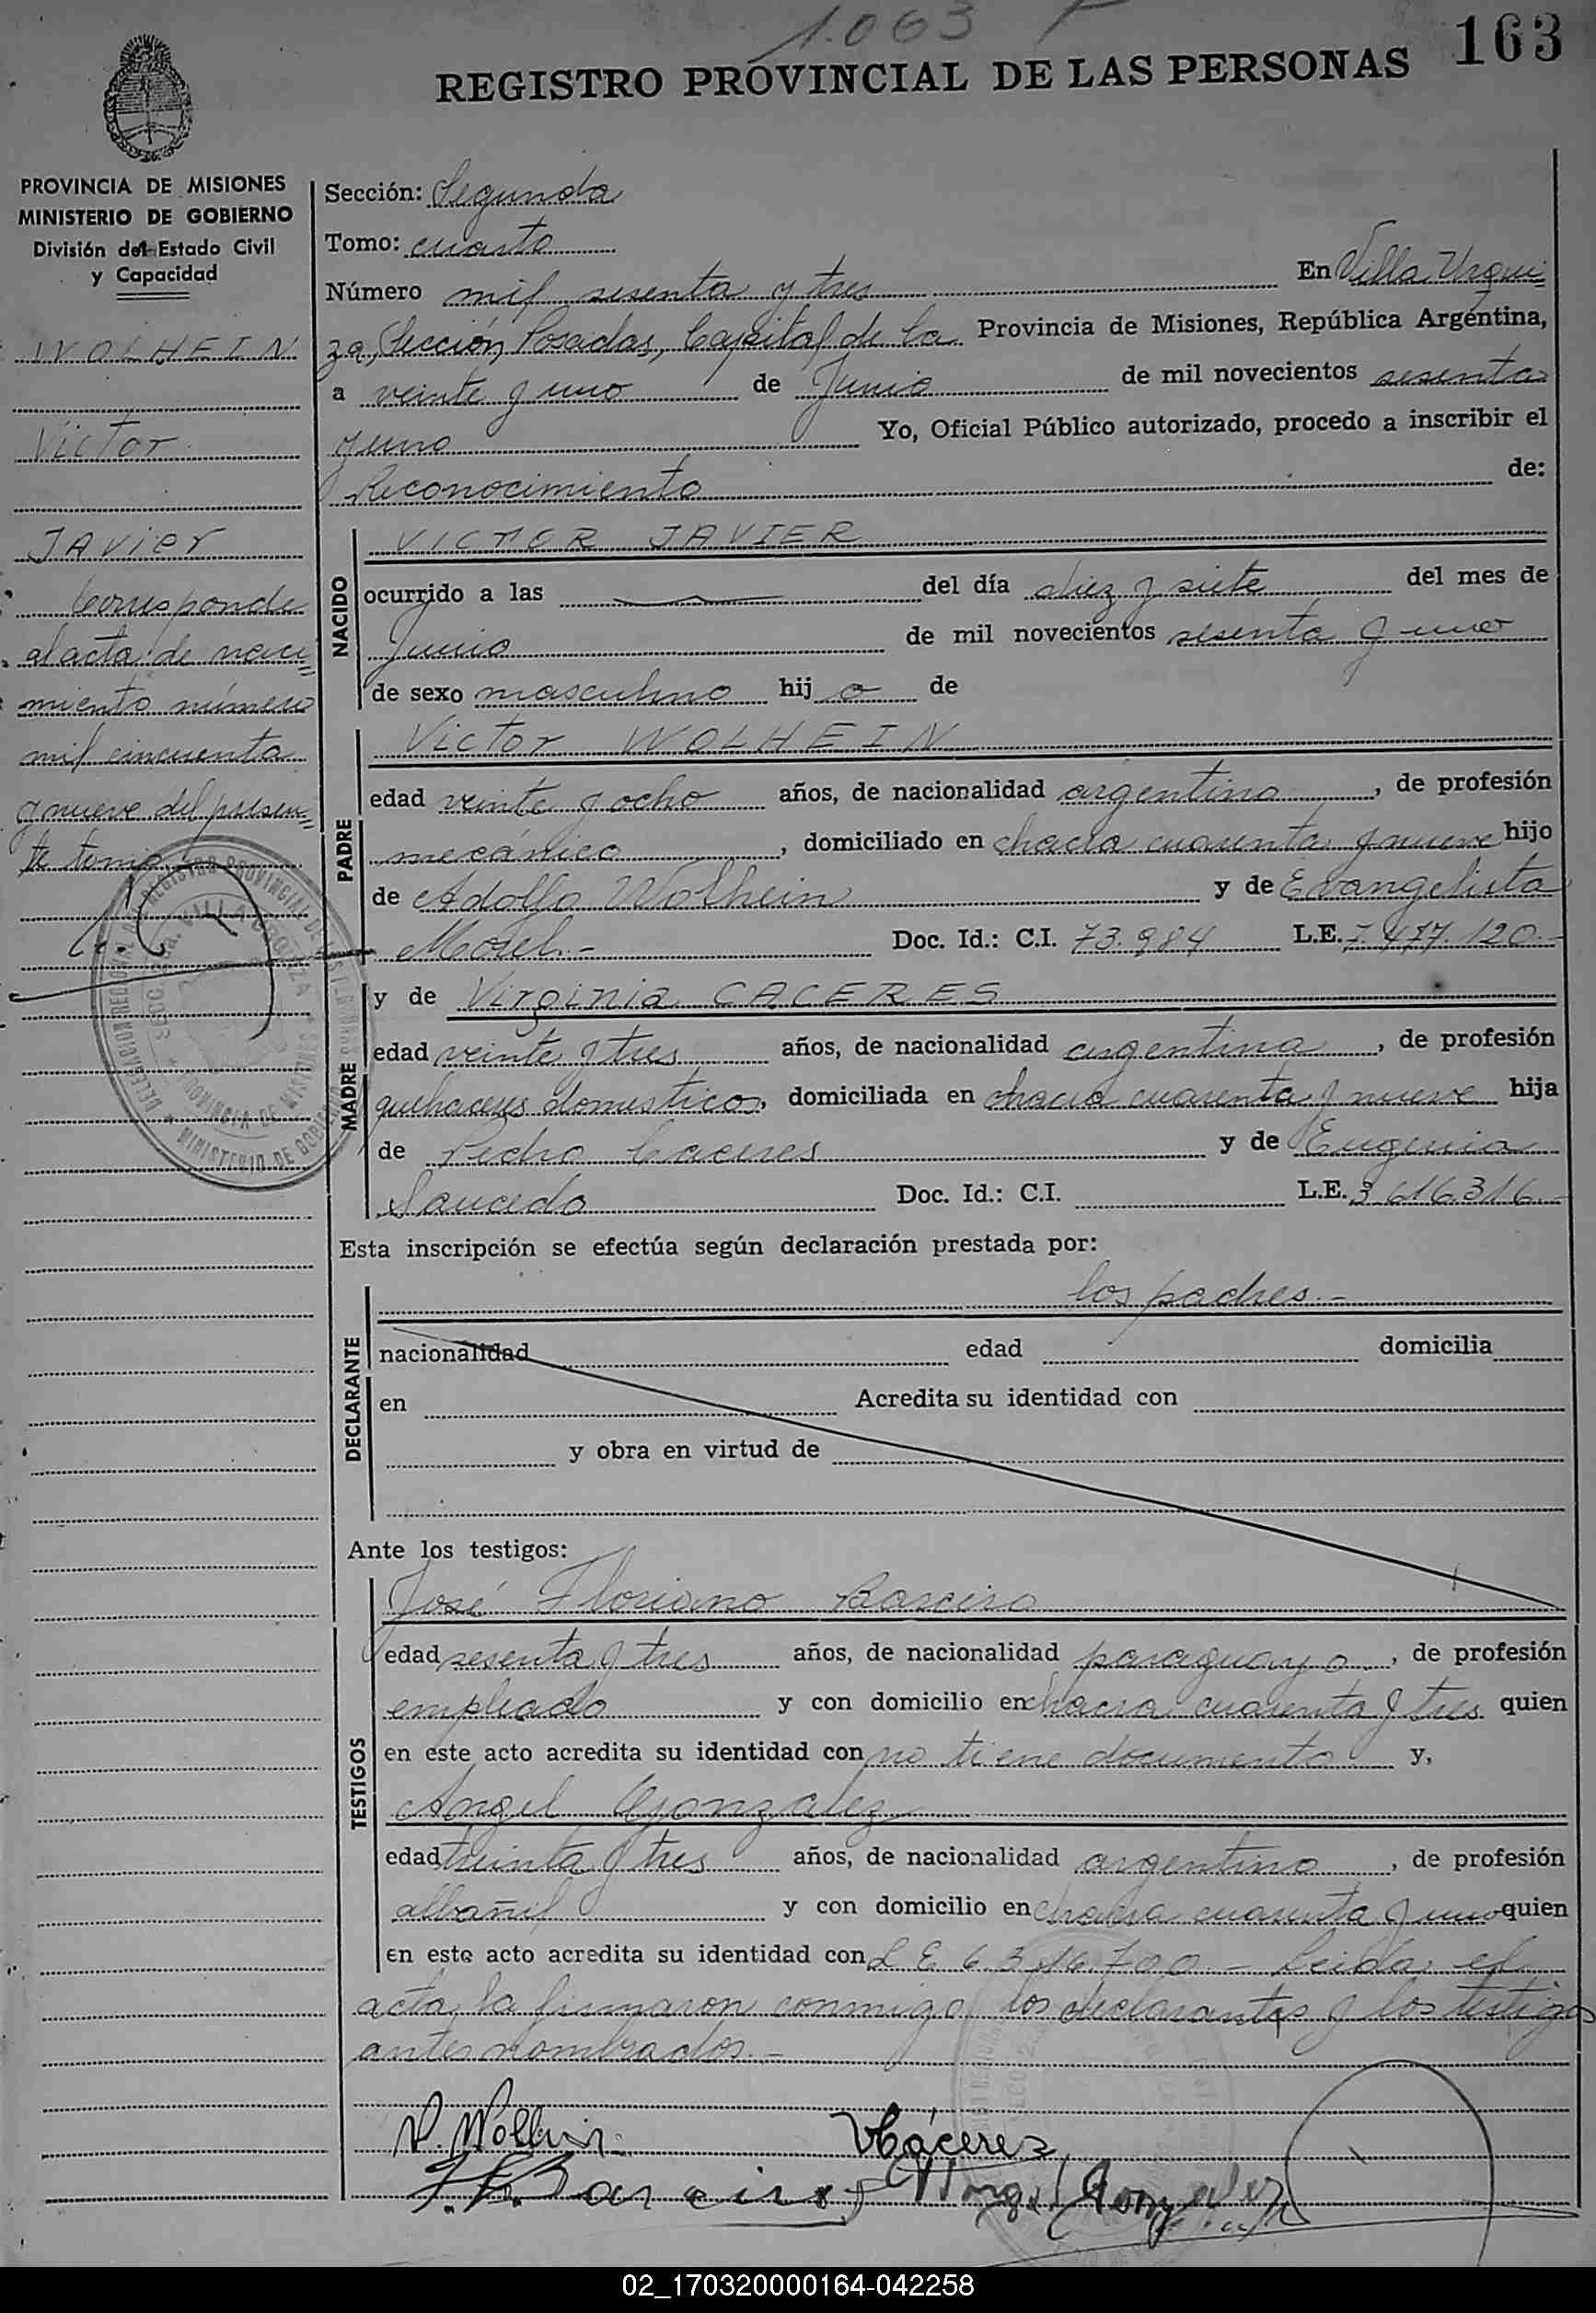 1.063
163
REGISTRO PROVINCIAL DE LAS PERSONAS
PROVINCIA DE MISIONES
MINISTERIO DE GOBIERNO
División del Estado Civil
y Capacidad
WOLHEIN
Víctor
JAVier
Corresponde
al acta de naci=
miento número
mil cincuenta
y nueve del presen=
te tomo.
Sección: Segunda
Tomo: cuarto
Número mil sesenta y tres En Villa Urqui
za, Sección Posadas, Capital de la Provincia de Misiones, República Argentina,
a veinte y uno de Junio de mil novecientos sesenta
y uno Yo, Oficial Público autorizado, procedo a inscribir el
Reconocimiento de:
NACIDO
VICTOR JAVIER
ocurrido a las del día diez y siete del mes de
Junio de mil novecientos sesenta y uno
de sexo masculino hijo de
PADRE
Victor WOLHEIN
edad veinte y ocho años, de nacionalidad argentino, de profesión
mecánico, domiciliado en chacra cuarenta y nueve hijo
de Adolfo Wolhein y de Evangelista
Morel.- Doc. Id.: C.I. 73.984 L.E. 7.477.120.-
MADRE
y de Virginia CACERES
edad veinte y tres años, de nacionalidad argentina, de profesión
quehaceres domesticos, domiciliada en chacra cuarenta y nueve hija
de Pedro Caceres y de Eugenia
Saucedo Doc. Id.: C.I. L.E. 3.616.316.-
Esta inscripción se efectúa según declaración prestada por:
DECLARANTE
los padres.-
nacionalidad edad domicilia
en Acredita su identidad con
y obra en virtud de
Ante los testigos:
TESTIGOS
José Floriano Bareiro
edad sesenta y tres años, de nacionalidad paraguayo, de profesión
empleado y con domicilio en chacra cuarenta y tres quien
en este acto acredita su identidad con no tiene documento y,
Angel Gonzalez
edad treinta y tres años, de nacionalidad argentino, de profesión
albañil y con domicilio en chacra cuarenta y uno quien
en este acto acredita su identidad con L E 6.316.700 - Leida el
acta la firmaron conmigo los declarantes y los testigos
antes nombrados.-
V. Wolhein
V Cáceres
J. F. Bareiro
Angel Gonzalez
02_170320000164-042258